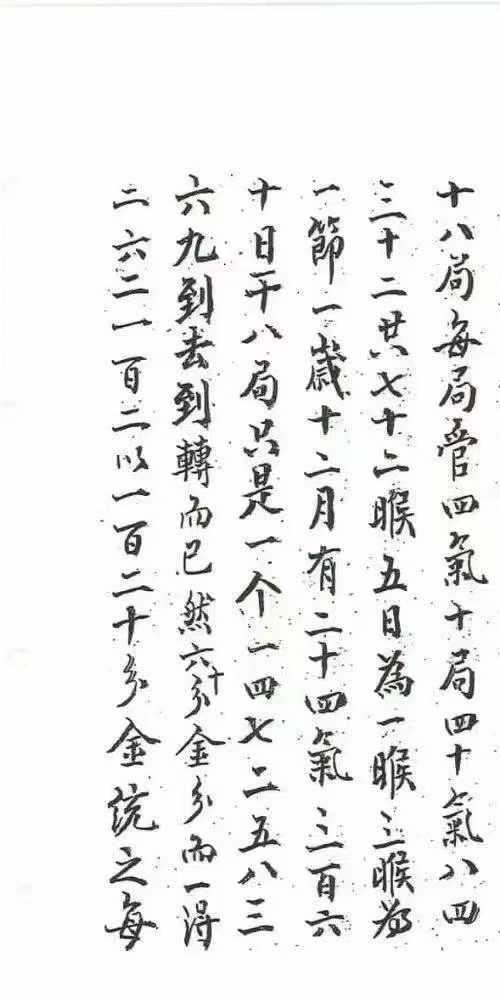 十八局每局管四氣十局四十氣八四
三十二共七十二睺五日為一睺三睺為
一節一歲十二月有二十四氣三百六
十日一十八局只是一个一四七二五八三
六九到去到轉而已然六十分金分而一得
二六二一百二以一百二十分金统之每